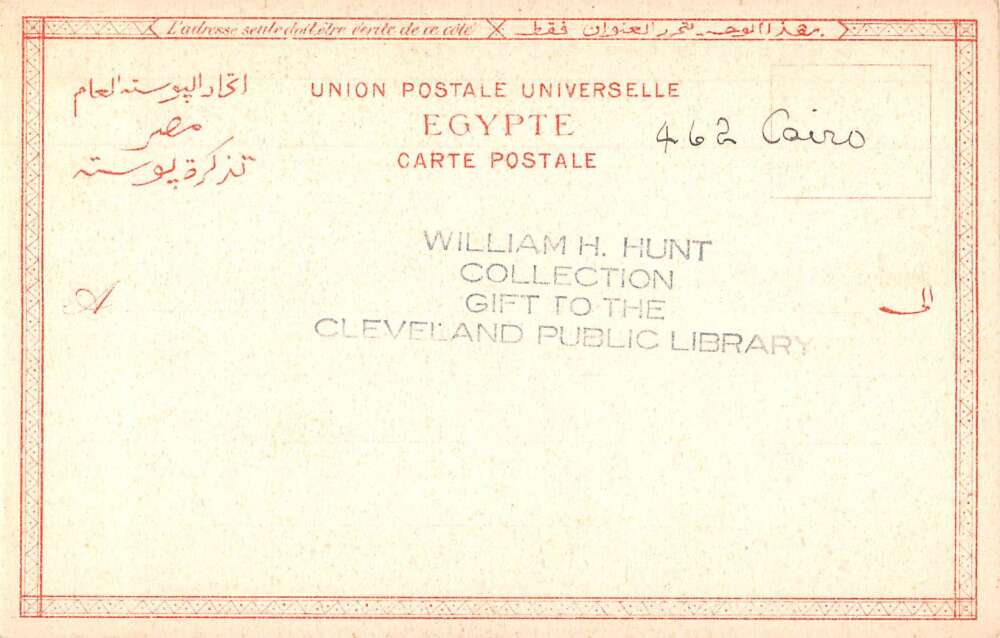 L'adresse seule doit être écrite de ce côté
بهذا الوجه يتحرر العنوان فقط
اتحاد البوسته العام
مصر
تذكرة بوسته
UNION POSTALE UNIVERSELLE
EGYPTE
CARTE POSTALE
462 Cairo
WILLIAM H. HUNT
COLLECTION
GIFT TO THE
CLEVELAND PUBLIC LIBRARY
A
الى